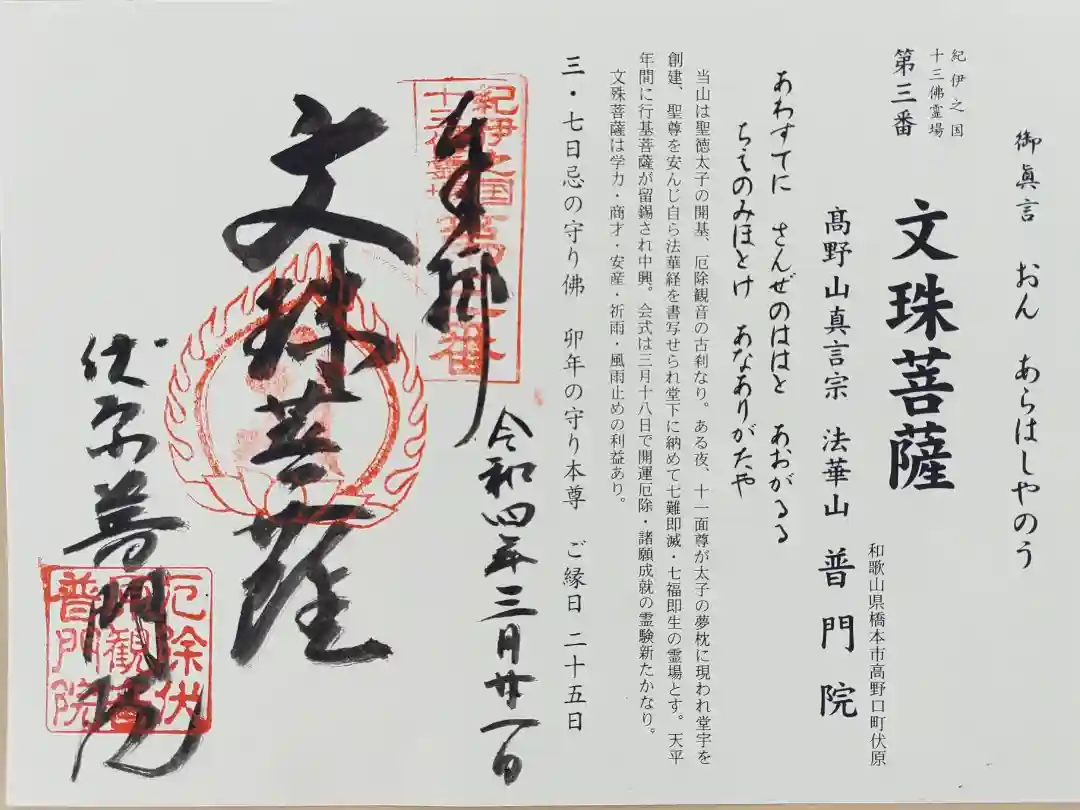 御眞言　おん　あらはしやのう
紀伊之国
十三佛霊場
第三番　文殊菩薩
和歌山県橋本市高野口町伏原
髙野山真言宗　法華山　普門院
あわすてに　さんぜのははと　あおがるる
ちえのみほとけ　あなありがたや
当山は聖徳太子の開基、厄除観音の古刹なり。ある夜、十一面尊が太子の夢枕に現われ堂宇を
創建、聖尊を安んじ自ら法華経を書写せられ堂下に納めて七難即滅・七福即生の霊場とす。天平
年間に行基菩薩が留錫され中興。会式は三月十八日で開運厄除・諸願成就の霊験新たかなり。
文殊菩薩は学力・商才・安産・祈雨・風雨止めの利益あり。
三・七日忌の守り佛　卯年の守り本尊　ご縁日 二十五日
紀伊之国
十三佛霊場
第三番
奉拝
令和四年三月廿一日
文殊菩薩
伏原普門院
厄除伏
原観音
普門院